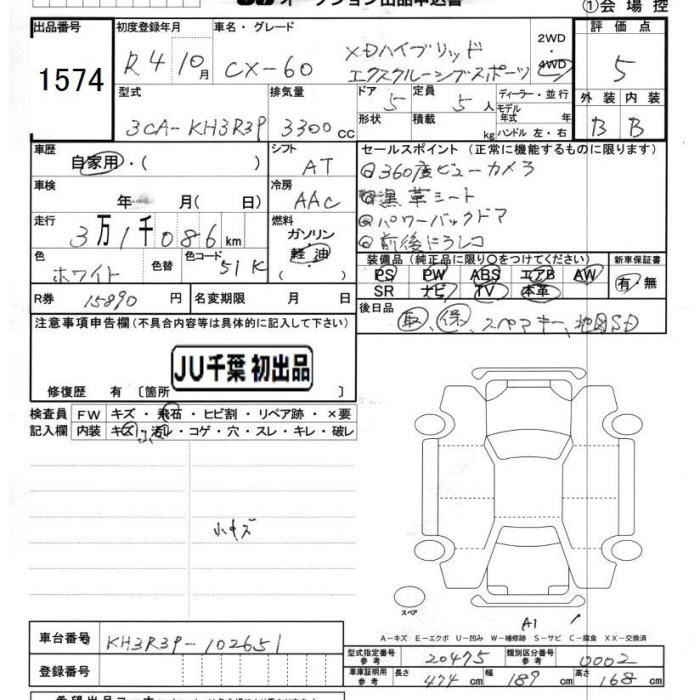 オークション出品申込書
①会場控
出品番号 1574
初度登録年月 R4 10月
車名・グレード CX-60 XDハイブリッド エクスクルーシブスポーツ
2WD・4WD
評価点 5
外装 B 内装 B
型式 3CA-KH3R3P
排気量 3300cc
ドア 5 定員 5人
形状 積載 kg
ディーラー・並行
モデル年式 年式
ハンドル 左・右
車歴 自家用・( )
シフト AT
セールスポイント(正常に機能するものに限ります)
◎360度ビューカメラ
◎黒革シート
◎パワーバックドア
◎前後ドラレコ
車検 年 月( 日)
冷房 AAC
走行 3万1千086km
燃料 ガソリン・軽油
色 ホワイト 色替 色コード 51K
装備品(純正品に限り○をつけてください) 新車保証書
PS PW ABS エアB AW 有・無
SR ナビ TV 本革
R券 15890円 名変期限 月 日
後日品 取、保、スペアキー、地図SD
注意事項申告欄(不具合内容等は具体的に記入して下さい)
JU千葉 初出品
修復歴 有〔箇所 〕
検査員 FW キズ・飛石・ヒビ割・リペア跡・×要
記入欄 内装 キズ・汚レ・コゲ・穴・スレ・キレ・破レ
小キズ
スペア
A1
A-キズ E-エクボ U-凹み W-補修跡 S-サビ C-腐食 XX-交換済
車台番号 KH3R3P-102651
登録番号
型式指定番号 参考 20475 類別区分番号 参考 0002
車庫証明用 参考 長さ 474cm 幅 189cm 高さ 168cm